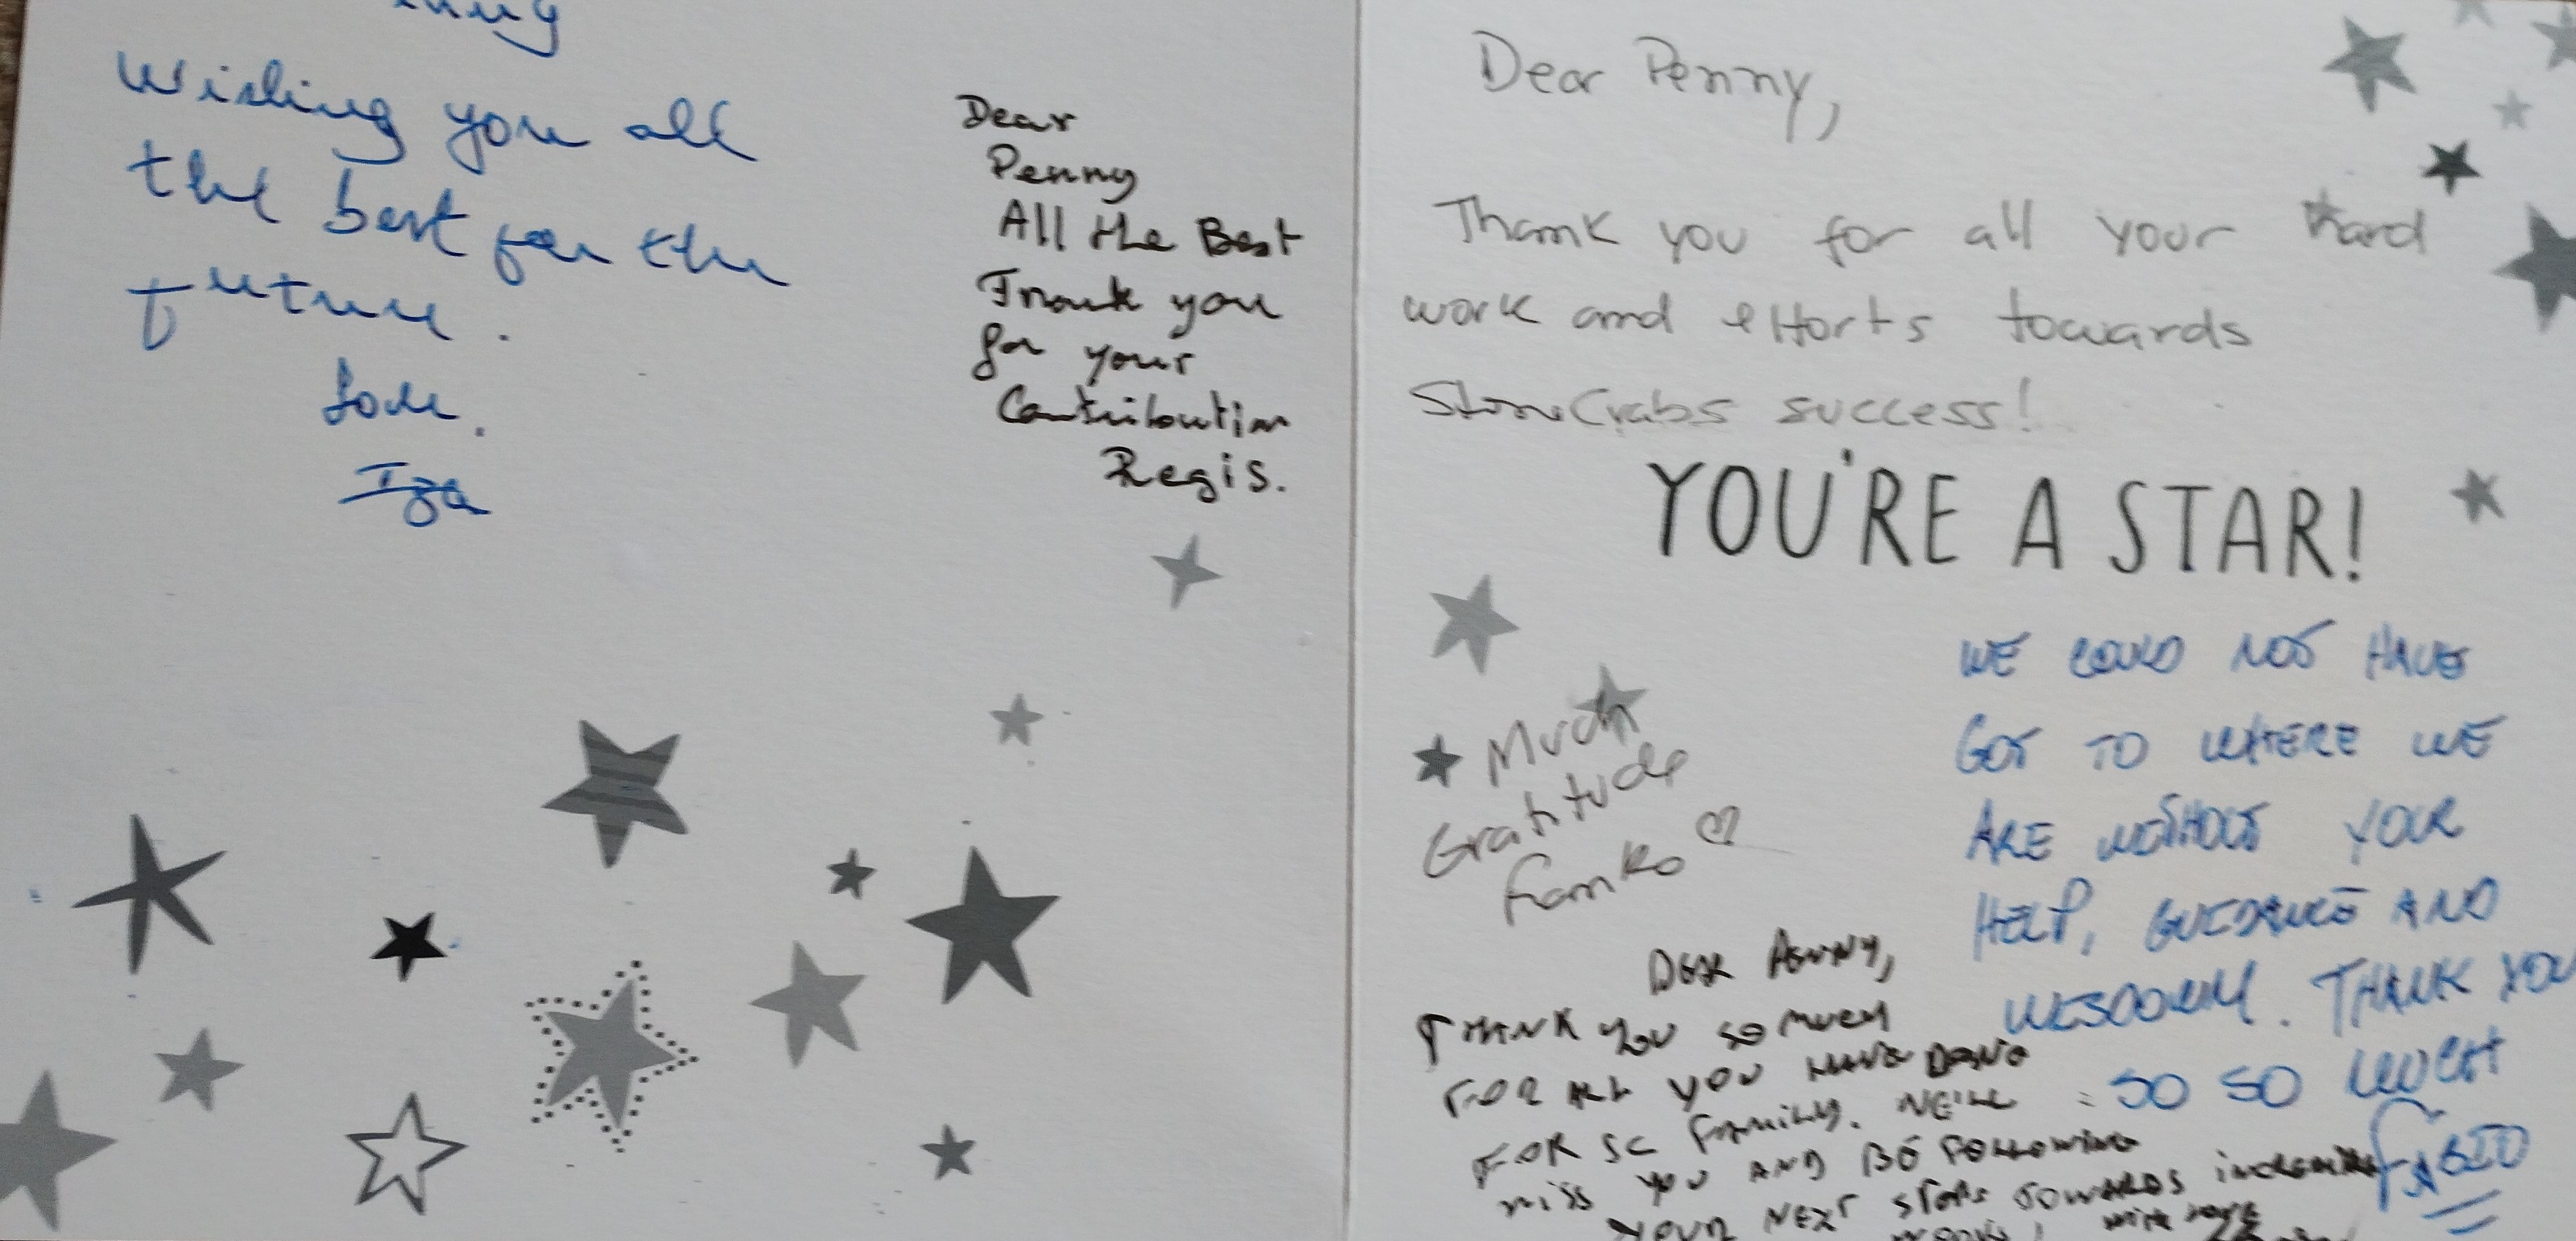 Wishing you all
the best for the
future.
Love.
Iza
Dear
Penny
All the Best
Thank you
for your
Contribution
Regis.
Dear Penny,
Thank you for all your hard
work and efforts towards
StoneCrabs success!
YOU'RE A STAR!
Much
Gratitude
Franko
WE COULD NOT HAVE
GOT TO WHERE WE
ARE WITHOUT YOUR
HELP, GUIDANCE AND
WISDOM. THANK YOU
SO SO MUCH
FABIO
DEAR PENNY,
THANK YOU SO MUCH
FOR ALL YOU HAVE DONE
FOR SC FAMILY. WE'LL
MISS YOU AND BE FOLLOWING
YOUR NEXT STEPS TOWARDS
WITH LOVE